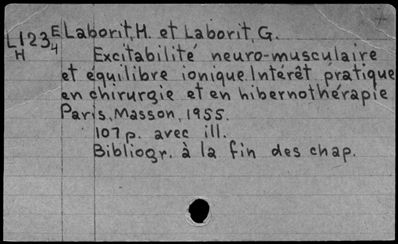 L123E4 Laborit, H. et Laborit, G.
H
Excitabilité neuro-musculaire
et équilibre ionique. Intérêt pratique
en chirurgie et en hibernothérapie
Paris, Masson, 1955.
107 p. avec ill.
Bibliogr. à la fin des chap.